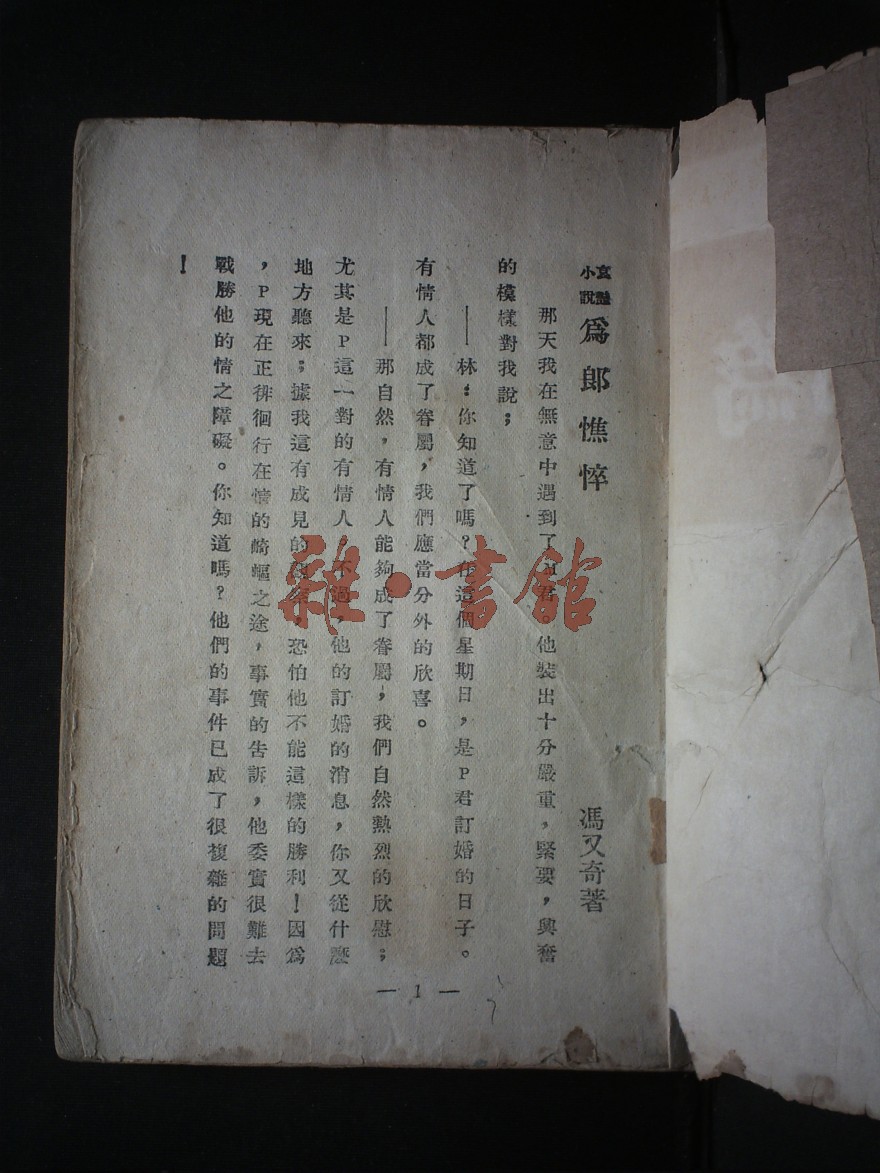 小說
爲郎憔悴
馮又奇著
那天我在無意中遇到了君。他裝出十分嚴重,緊要,興奮
的模樣對我說;
——林:你知道了嗎?在這個星期日,是P君訂婚的日子。
有情人都成了眷屬,我們應當分外的欣喜。
——那自然,有情人能夠成了眷屬,我們自然熱烈的欣慰;
尤其是P這一對的有情人。不過,他的訂婚的消息,你又從什麼
地方聽來;據我這有成見的,恐怕他不能這樣的勝利!因爲
,P現在正徘徊行在情的崎嶇之途,事實的告訴,他委實很難去
戰勝他的情之障礙。你知道嗎?他們的事件已成了很複雜的問題
!
— 1 —
雜·書館